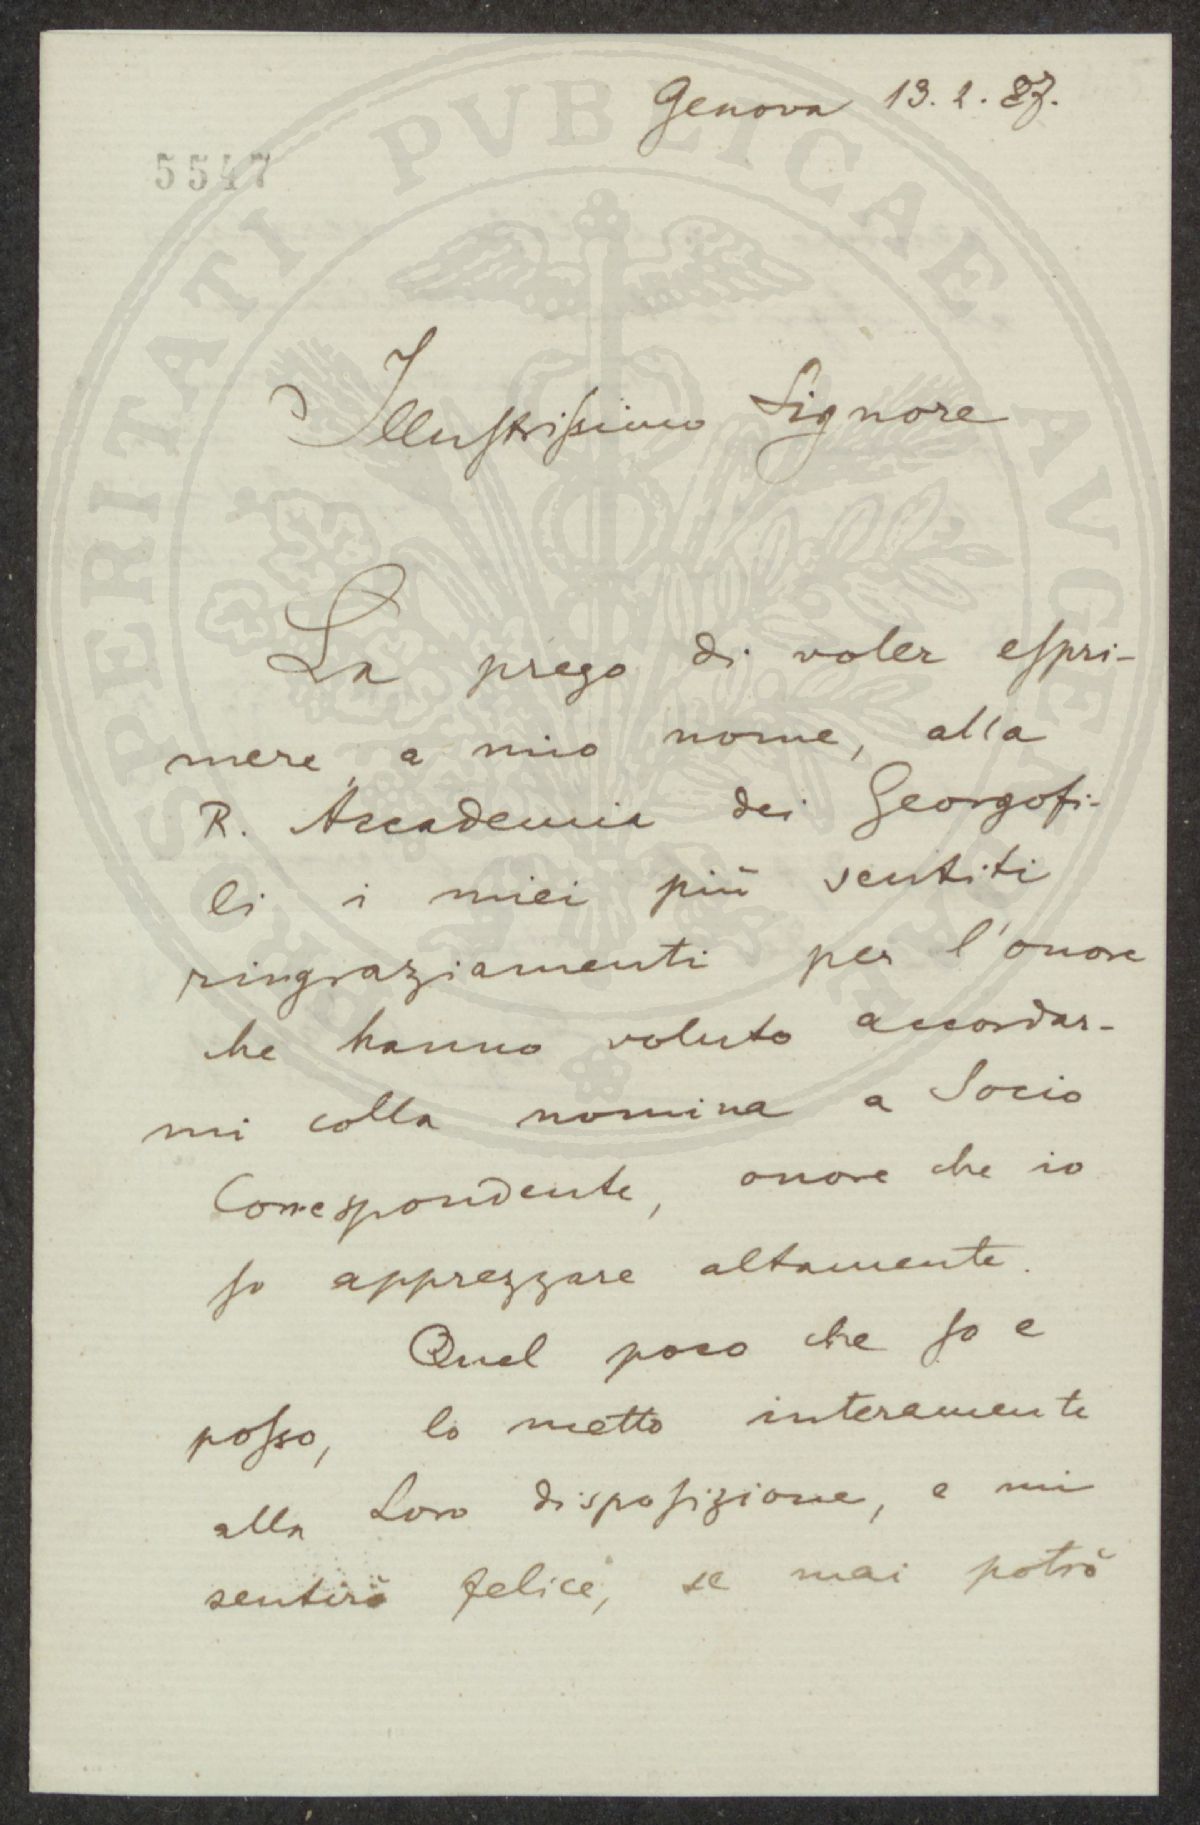 Genova 13. 2. 87.
5547
PROSPERITATI PVBLICAE AVGENDAE
Illustrissimo Signore
La prego di voler espri-
mere, a mio nome, alla
R. Accademia dei Georgofi-
li i miei più sentiti
ringraziamenti per l'onore
che hanno voluto accordar-
mi colla nomina a Socio
Correspondente, onore che io
so apprezzare altamente.
Quel poco che so e
posso, lo metto interamente
alla Loro disposizione, e mi
sentirò felice, se mai potrò